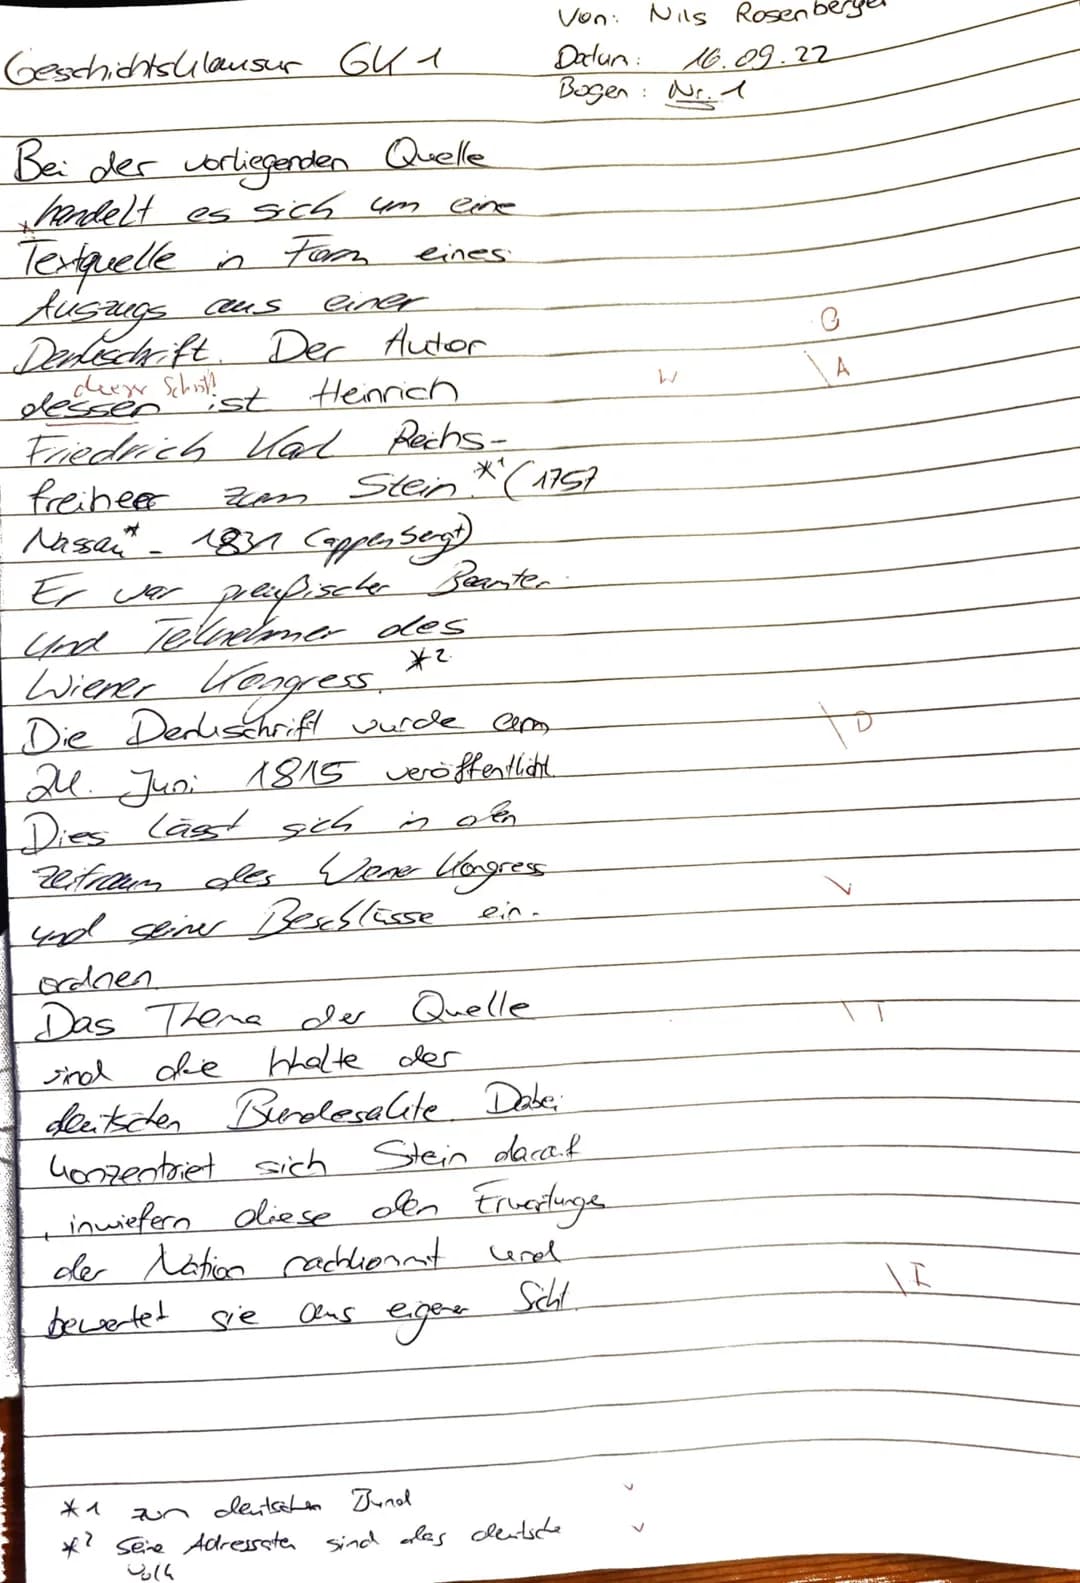 Von: Nils Rosenberger
Geschichtsklausur GK 1
Datum: 16.09.22
Bogen: Nr. 1
Bei der vorliegenden Quelle
handelt es sich um eine
Textquelle in Form eines
Auszugs aus einer
G
Denkschrift. Der Autor
A
dieser Schrift
W
dessen ist Heinrich
Friedrich Karl Reichs-
freiherr zum Stein.*1 (1757
Nassau* - 1831 Cappenberg†)
Er war preußischer Beamter
und Teilnehmer des
Wiener Kongress. *2
Die Denkschrift wurde am
D
24. Juni 1815 veröffentlicht.
Dies lässt sich in den
Zeitraum des Wiener Kongress
und seiner Beschlüsse ein-
ordnen.
Das Thema der Quelle
T
sind die Inhalte der
deutschen Bundesakte. Dabei
konzentriet sich Stein darauf
, inwiefern diese den Erwartunge
der Nation nachkommt und
I
bewertet sie aus eigener Sicht.
*1 zum deutschen Bund
*2 Seine Adressaten sind das deutsche
Volk